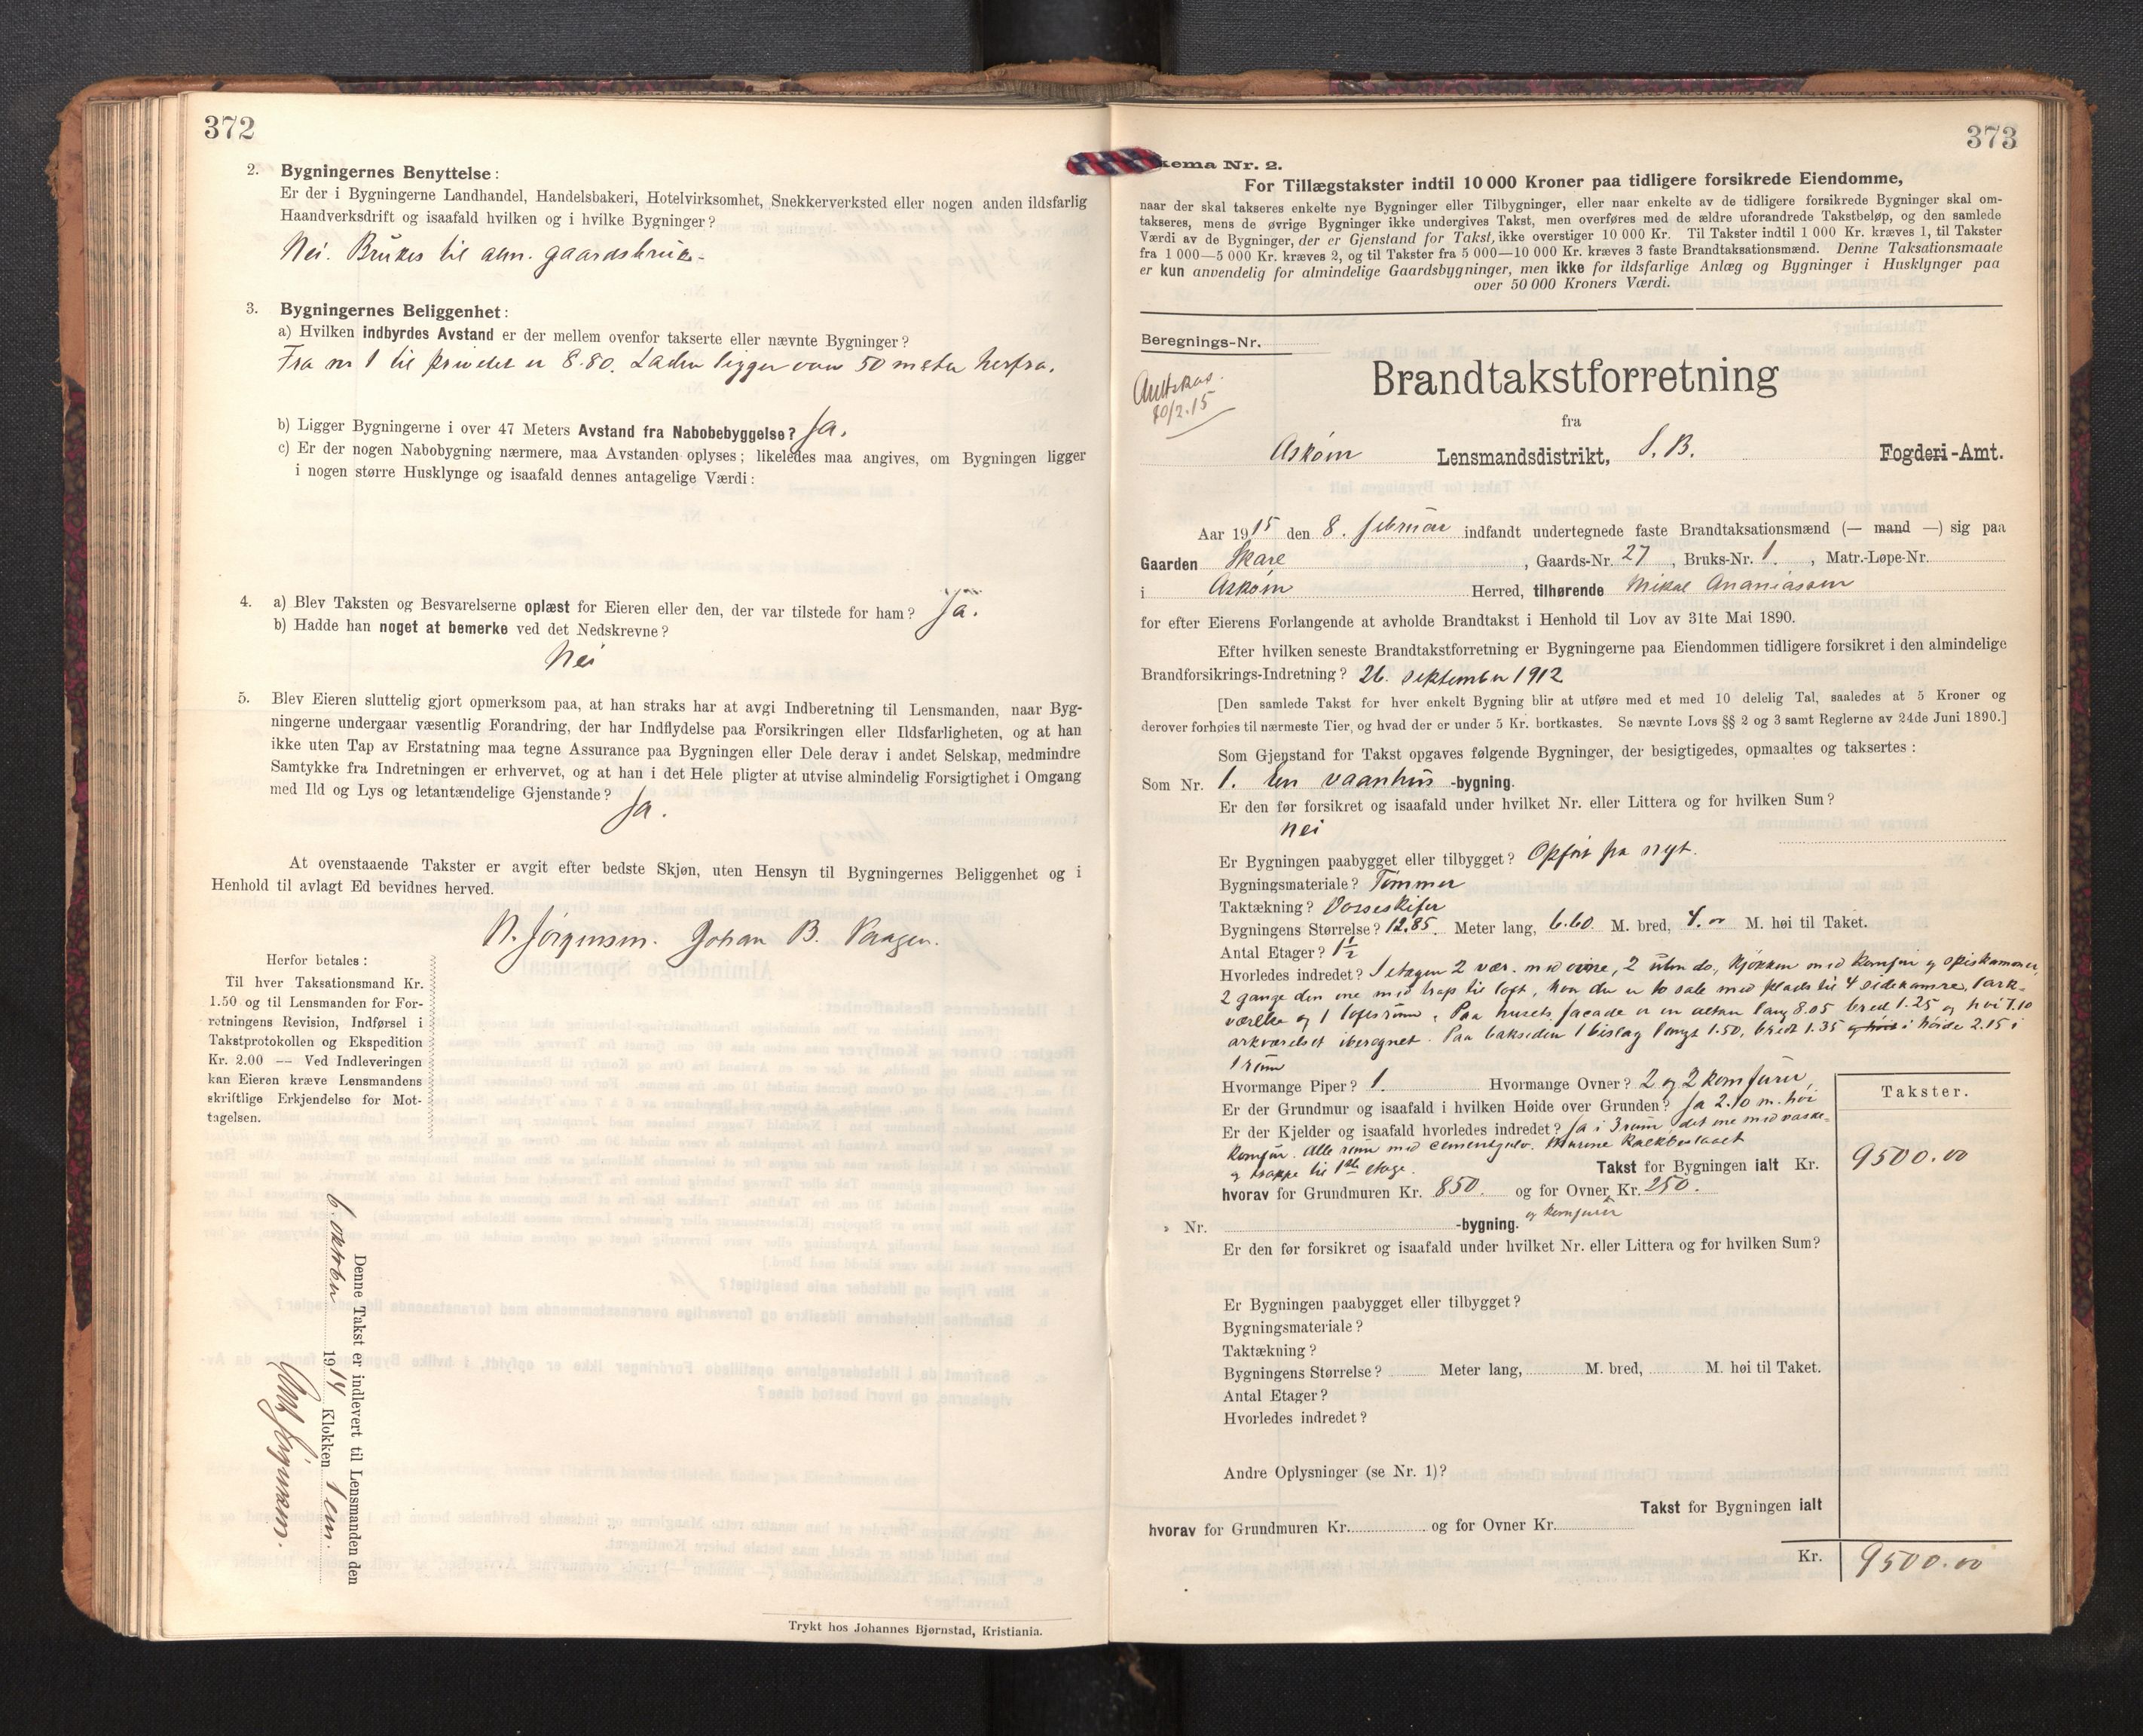 372
2. Bygningernes Benyttelse:
Er der i Bygningerne Landhandel, Handelsbakeri, Hotelvirksomhet, Snekkerverksted eller nogen anden ildsfarlig
Haandverksdrift og isaafald hvilken og i hvilke Bygninger?
Nei. Brukes til alm. gaardsbruk.
3. Bygningernes Beliggenhet:
a) Hvilken indbyrdes Avstand er der mellem ovenfor takserte eller nævnte Bygninger?
Fra nr 1 til privetet er 8.80. Laden ligger over 50 meter herfra.
b) Ligger Bygningerne i over 47 Meters Avstand fra Nabobebyggelse? Ja.
c) Er der nogen Nabobygning nærmere, maa Avstanden oplyses; likeledes maa angives, om Bygningen ligger
i nogen større Husklynge og isaafald dennes antagelige Værdi:
4. a) Blev Taksten og Besvarelserne oplæst for Eieren eller den, der var tilstede for ham? Ja.
b) Hadde han noget at bemerke ved det Nedskrevne?
Nei
5. Blev Eieren sluttelig gjort opmerksom paa, at han straks har at avgi Indberetning til Lensmanden, naar Byg-
ningerne undergaar væsentlig Forandring, der har Indflydelse paa Forsikringen eller Ildsfarligheten, og at han
ikke uten Tap av Erstatning maa tegne Assurance paa Bygningen eller Dele derav i andet Selskap, medmindre
Samtykke fra Indretningen er erhvervet, og at han i det Hele pligter at utvise almindelig Forsigtighet i Omgang
med Ild og Lys og letantændelige Gjenstande?
Ja.
At ovenstaaende Takster er avgit efter bedste Skjøn, uten Hensyn til Bygningernes Beliggenhet og i
Henhold til avlagt Ed bevidnes herved.
N. Jörgensen. Johan B. Kragen.
Herfor betales:
Til hver Taksationsmand Kr.
1.50 og til Lensmanden for For-
retningens Revision, Indførsel i
Takstprotokollen og Ekspedition
Kr. 2.00 — Ved Indleveringen
kan Eieren kræve Lensmandens
skriftlige Erkjendelse for Mot-
tagelsen.
Denne Takst er indlevert til Lensmanden den
6 oktober 1914 Klokken 1 em.
Jörgensen.
Trykt hos Johannes Bjørnstad, Kristiania.
373
kema Nr. 2.
For Tillægstakster indtil 10 000 Kroner paa tidligere forsikrede Eiendomme,
naar der skal takseres enkelte nye Bygninger eller Tilbygninger, eller naar enkelte av de tidligere forsikrede Bygninger skal om-
takseres, mens de øvrige Bygninger ikke undergives Takst, men overføres med de ældre uforandrede Takstbeløp, og den samlede
Værdi av de Bygninger, der er Gjenstand for Takst, ikke overstiger 10 000 Kr. Til Takster indtil 1 000 Kr. kræves 1, til Takster
fra 1 000—5 000 Kr. kræves 2, og til Takster fra 5 000—10 000 Kr. kræves 3 faste Brandtaksationsmænd. Denne Taksationsmaate
er kun anvendelig for almindelige Gaardsbygninger, men ikke for ildsfarlige Anlæg og Bygninger i Husklynger paa
over 50 000 Kroners Værdi.
Beregnings-Nr.
10/2.15
Brandtakstforretning
fra
Askøin Lensmandsdistrikt, S. B. Fogderi-Amt.
Aar 1915 den 8. februar indfandt undertegnede faste Brandtaksationsmænd (— mand —) sig paa
Gaarden Skare, Gaards-Nr. 27, Bruks-Nr. 1., Matr.-Løpe-Nr.
i Askøin Herred, tilhørende Mikal Ananiassen
for efter Eierens Forlangende at avholde Brandtakst i Henhold til Lov av 31te Mai 1890.
Efter hvilken seneste Brandtakstforretning er Bygningerne paa Eiendommen tidligere forsikret i den almindelige
Brandforsikrings-Indretning? 26. september 1912
[Den samlede Takst for hver enkelt Bygning blir at utføre med et med 10 delelig Tal, saaledes at 5 Kroner og
derover forhøies til nærmeste Tier, og hvad der er under 5 Kr. bortkastes. Se nævnte Lovs §§ 2 og 3 samt Reglerne av 24de Juni 1890.]
Som Gjenstand for Takst opgaves følgende Bygninger, der besigtigedes, opmaaltes og taksertes:
Som Nr. 1. En vaanhus -bygning.
Er den før forsikret og isaafald under hvilket Nr. eller Littera og for hvilken Sum?
nei
Er Bygningen paabygget eller tilbygget? Opfört fra nyt.
Bygningsmateriale? Tömmer
Taktækning? Vosseskifer
Bygningens Størrelse? 12.85. Meter lang, 6.60 M. bred, 4.00 M. høi til Taket.
Antal Etager? 1½
Hvorledes indredet? I etagen 2 vær. med ovne, 2 uten do., kjökken med komfur og spiskammer,
2 gange den ene med trap til loft, hvor der er to sale med plads til 4 sidekamre, 1 ark-
værelse og 1 loftsrum. Paa husets facade er en altan lang 8.05 bred 1.25 og høi 7.10
arkværelset iberegnet. Paa baksiden 1 bislag langt 1.50, bredt 1.35 og høit i höide 2.15 i
1 rum
Hvormange Piper? 1. Hvormange Ovner? 2 og 2 komfurer,
Er der Grundmur og isaafald i hvilken Høide over Grunden? Ja 2.10 m. høi
Er der Kjelder og isaafald hvorledes indredet? Ja i 3 rum, det ene med vaske-
komfur. Alle rum med cementgulv. Murene kalkbeslaaet
og trappe til 1ste etage. Takst for Bygningen ialt Kr. 9500.00
hvorav for Grundmuren Kr. 850. og for Ovner Kr. 250.
og komfurer
Takster.
» Nr. -bygning.
Er den før forsikret og isaafald under hvilket Nr. eller Littera og for hvilken Sum?
Er Bygningen paabygget eller tilbygget?
Bygningsmateriale?
Taktækning?
Bygningens Størrelse? Meter lang, M. bred, M. høi til Taket.
Antal Etager?
Hvorledes indredet?
Andre Oplysninger (se Nr. 1)?
Takst for Bygningen ialt
hvorav for Grundmuren Kr. og for Ovner Kr.
Kr. 9500.00